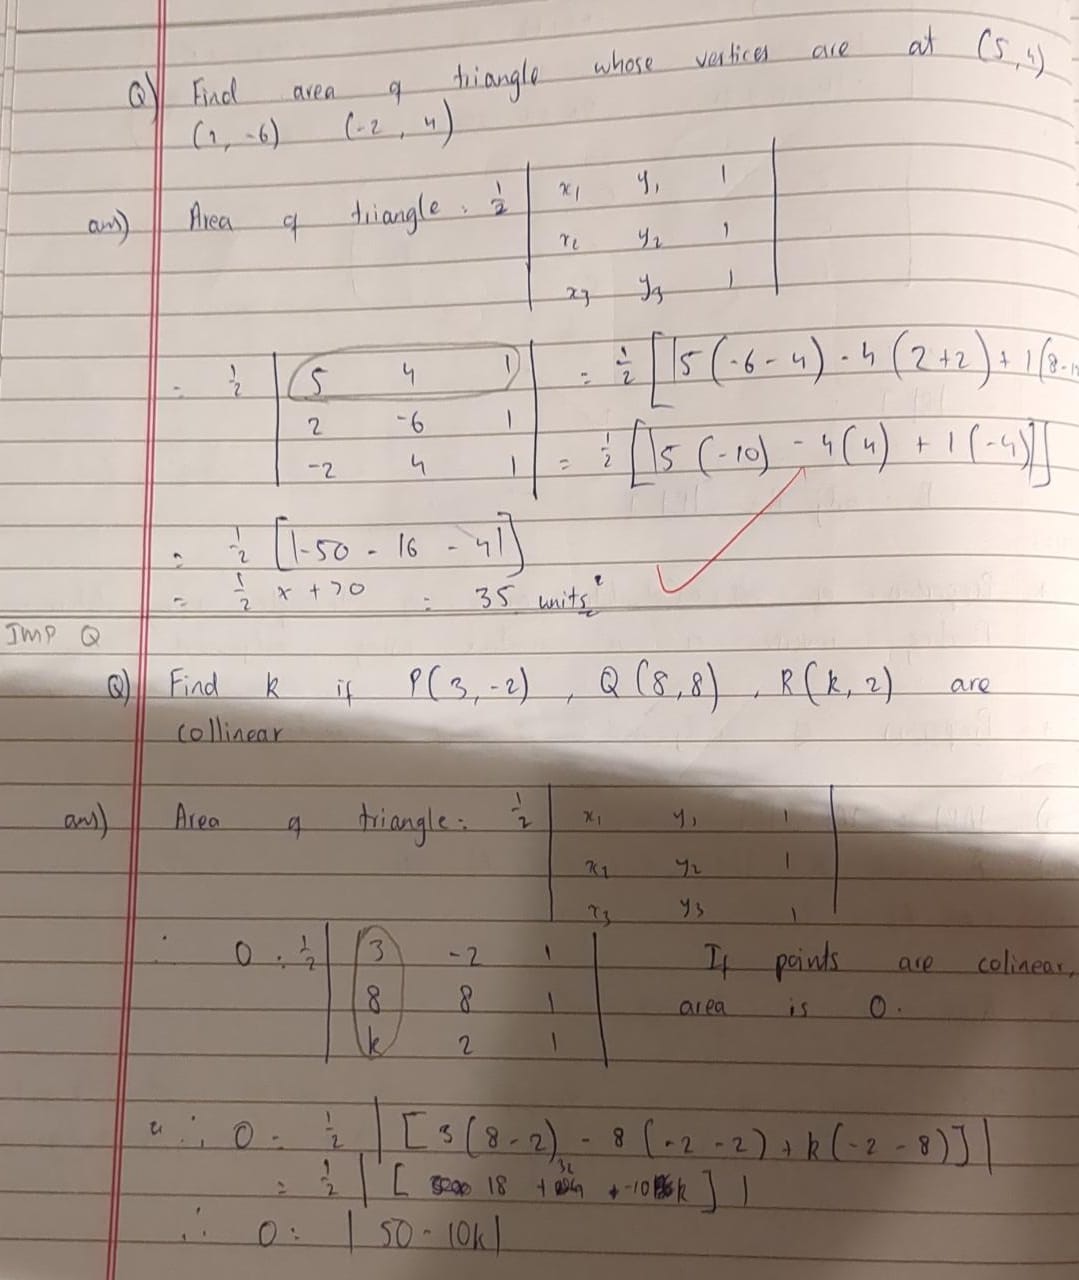 Q) Find area of triangle whose vertices are at (5,4)
(2, -6) (-2, 4)
ans) Area of triangle = 1/2 | x1 y1 1
x2 y2 1
x3 y3 1 |
= 1/2 | 5 4 1 | = 1/2 [|5(-6-4) - 4(2+2) + 1(8-
2 -6 1
-2 4 1 | = 1/2 [|5(-10) - 4(4) + 1(-4)|]
= 1/2 [|-50 - 16 - 4|]
= 1/2 x +70 = 35 units²
IMP Q
Q) Find k if P(3,-2), Q(8,8), R(k,2) are
collinear
ans) Area of triangle = 1/2 | x1 y1 1
x2 y2 1
x3 y3 1 |
∴ 0 = 1/2 | 3 -2 1 | If points are colinear,
8 8 1 area is 0.
k 2 1 |
∴ 0 = 1/2 |[3(8-2) - 8(-2-2) + k(-2-8)]|
= 1/2 |[18 + 32 + -10k]|
∴ 0 = |50 - 10k|